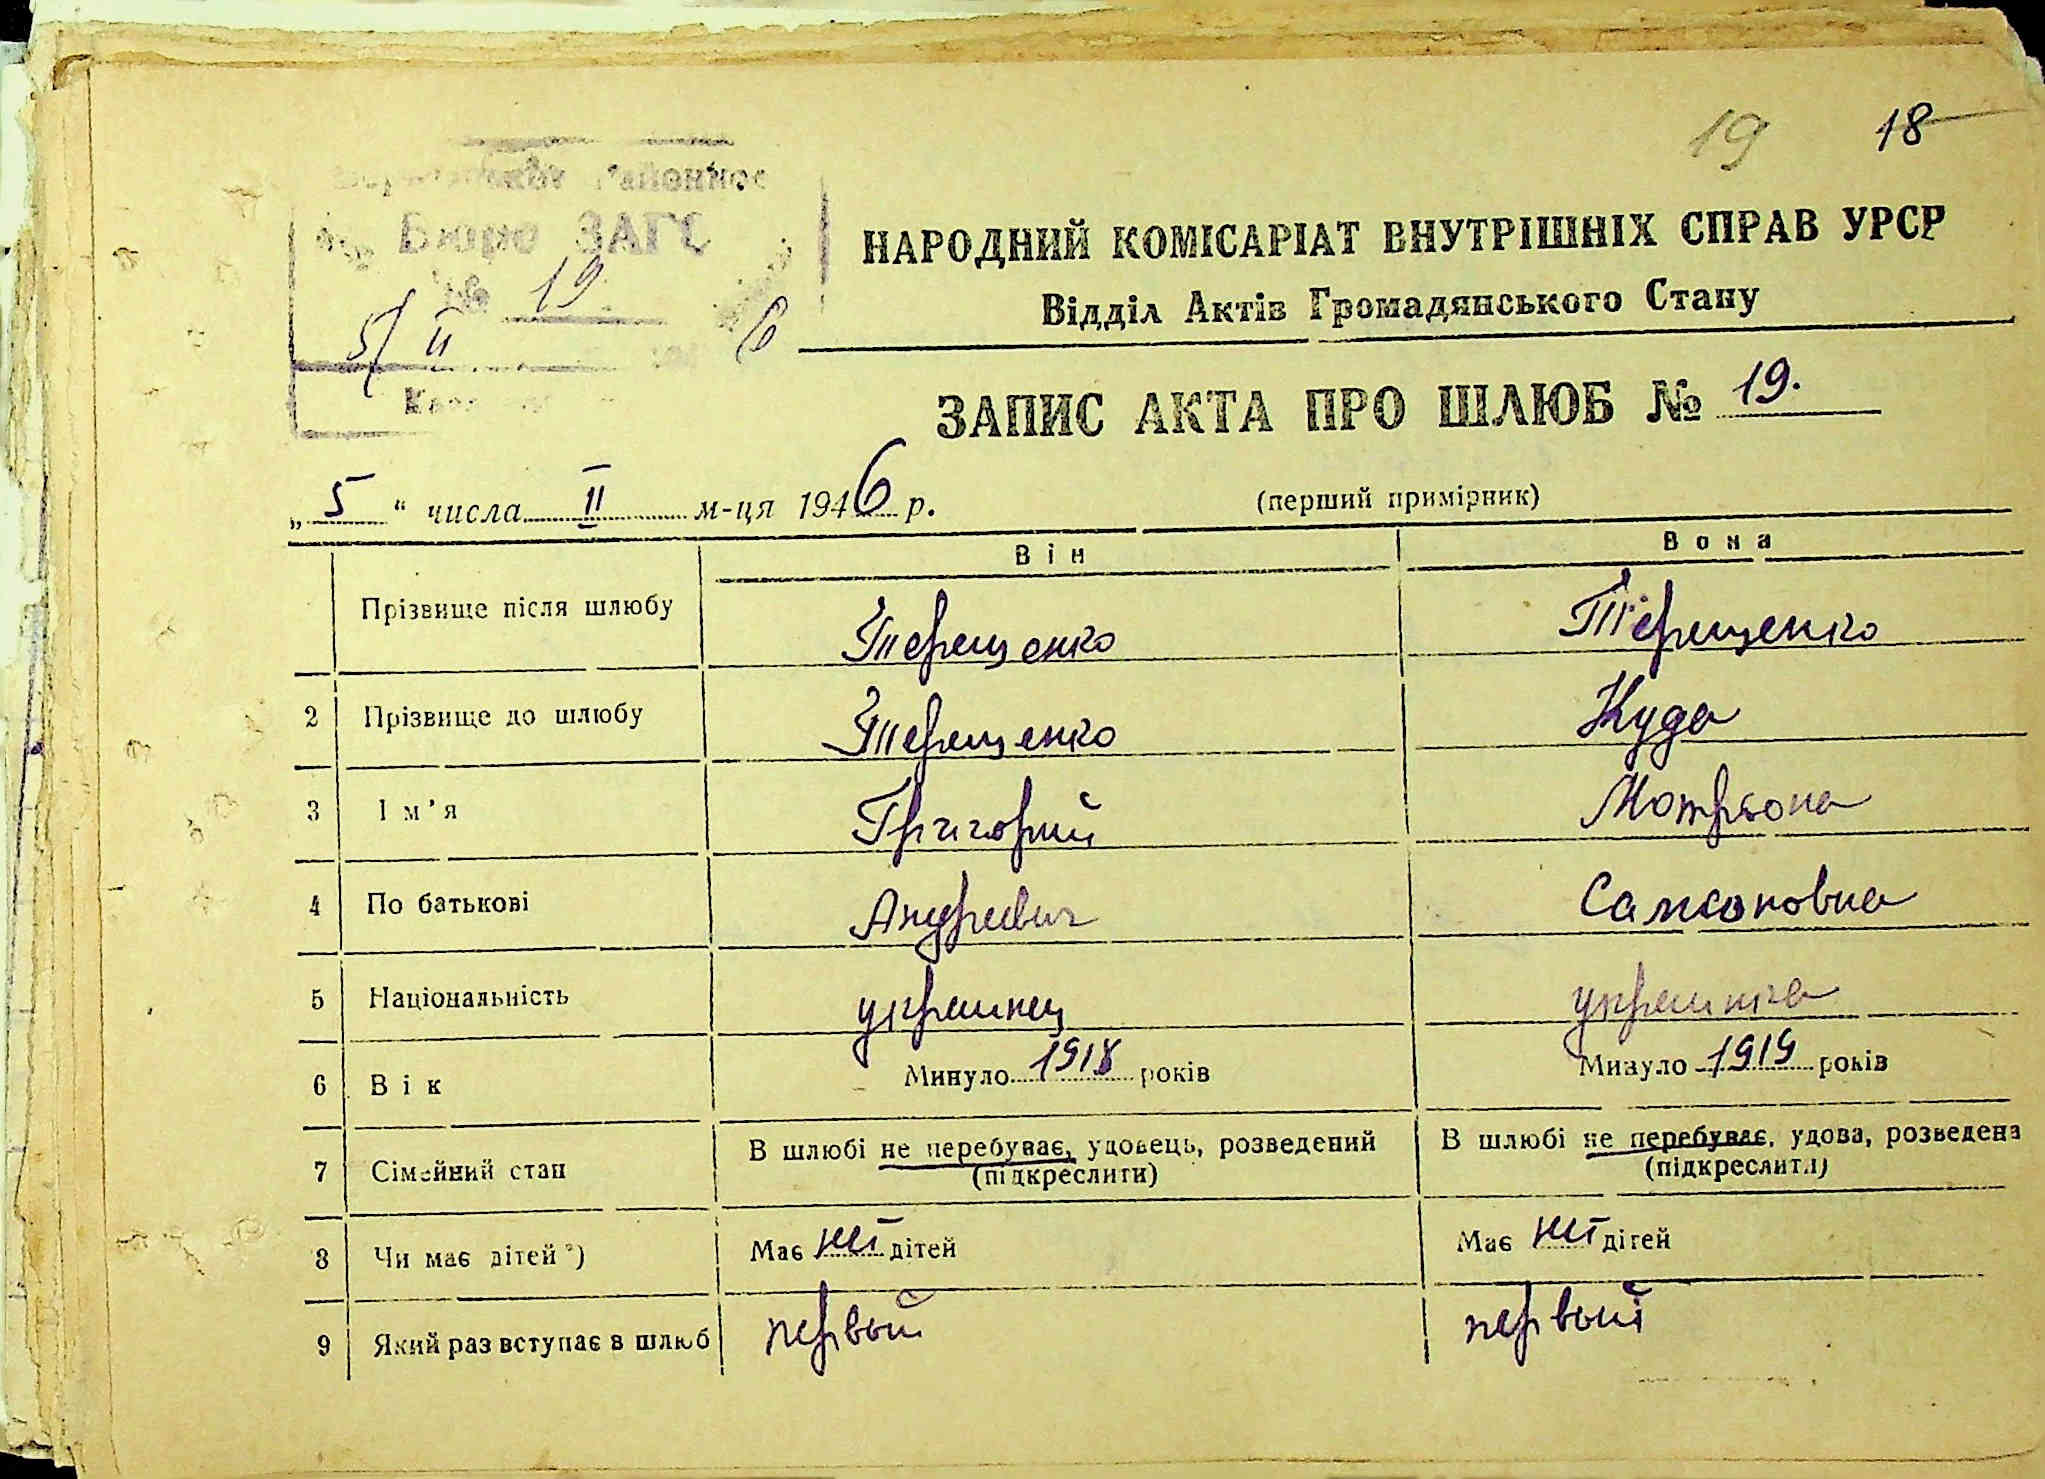 19 18
ЗАГС
№ 19
5/II 6
НАРОДНИЙ КОМІСАРІАТ ВНУТРІШНІХ СПРАВ УРСР
Відділ Актів Громадянського Стану
ЗАПИС АКТА ПРО ШЛЮБ № 19.
„5“ числа II м-ця 1946 р. (перший примірник)
Він Вона
Прізвище після шлюбу Терещенко Терещенко
2 Прізвище до шлюбу Терещенко Куда
3 Ім'я Григорий Мотрьона
4 По батькові Андреевич Самсоновна
5 Національність украинец украинка
6 Вік Минуло 1918 років Минуло 1919 років
7 Сімейний стан В шлюбі не перебуває, удовець, розведений В шлюбі не перебуває, удова, розведена
(підкреслити) (підкреслити)
8 Чи має дітей *) Має нет дітей Має нет дітей
9 Який раз вступає в шлюб первый первый